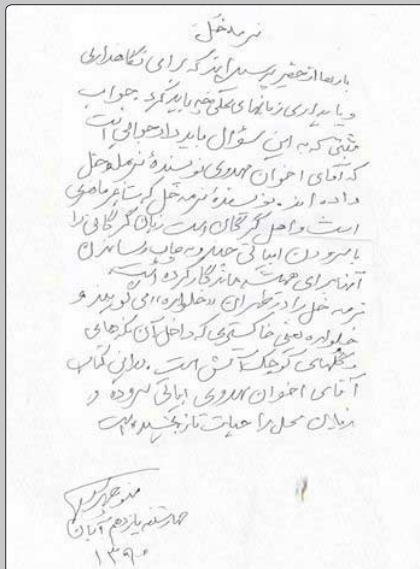 نرمه خل
بارها از حقیر پرسیده‌اند که برای نگاهداری
و پایداری زبانهای محلی چه باید کرد. جواب
مثبتی که به این سؤال باید داد جوابی است
که آقای اخوان مهدوی نویسندهٔ نرمه خل
داده‌اند. نویسندهٔ نرمه خل که شاعر
است و اهل گرگان است زبان گرگانی را
با سرودن ابیاتی چند و به چاپ رساندن
آنها برای همیشه ماندگار کرده است.
نرمه خل را در طهران «خلواره» می‌گویند و
خلواره یعنی خاکستری که داخل آن
کوچک آتش است. در این کتاب
آقای اخوان مهدوی ابیاتی سروده و
زبان محلی را حیات تازه بخشیده است
منوچهر ستوده
چهارشنبه یازدهم آبان
۱۳۹۰